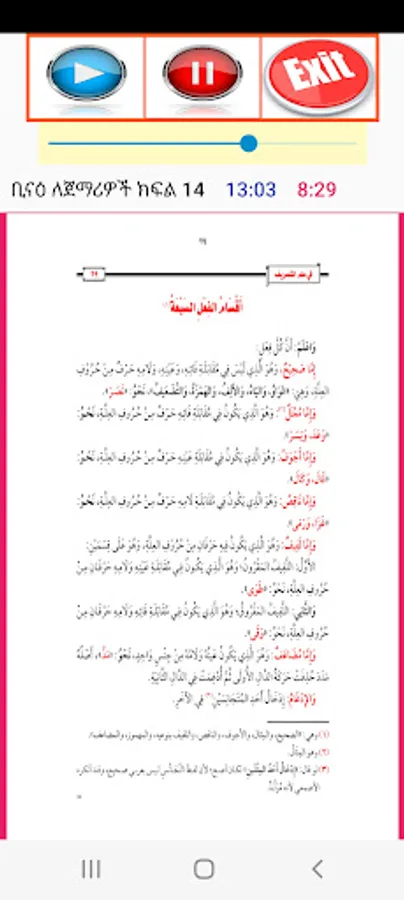 Exit
ቢናዕ ለጀማሪዎች ክፍል 14 13:03 8:29
في علم التصريف
أَقْسَامُ الفِعْلِ السَّبْعَةُ
وَاعْلَمْ: أَنَّ كُلَّ فِعْلٍ:
إِمَّا صَحِيحٌ، وَهُوَ الَّذِي لَيْسَ فِي مُقَابَلَةِ فَائِهِ، وَعَيْنِهِ، وَلَامِهِ حَرْفٌ مِنْ حُرُوفِ
العِلَّةِ، وَهِيَ: «الوَاوُ، وَاليَاءُ، وَالأَلِفُ، وَالهَمْزَةُ، وَالتَّضْعِيفُ»، نَحْوُ: «نَصَرَ».
وَإِمَّا مُعْتَلٌّ(٢): وَهُوَ الَّذِي يَكُونُ فِي مُقَابَلَةِ فَائِهِ حَرْفٌ مِنْ حُرُوفِ العِلَّةِ، نَحْوُ:
«وَعَدَ، وَيَسَرَ».
وَإِمَّا أَجْوَفُ: وَهُوَ الَّذِي يَكُونُ فِي مُقَابَلَةِ عَيْنِهِ حَرْفٌ مِنْ حُرُوفِ العِلَّةِ، نَحْوُ:
«قَالَ، وَكَالَ».
وَإِمَّا نَاقِصٌ: وَهُوَ الَّذِي يَكُونُ فِي مُقَابَلَةِ لَامِهِ حَرْفٌ مِنْ حُرُوفِ العِلَّةِ، نَحْوُ:
«غَزَا، وَرَمَى».
وَإِمَّا لَفِيفٌ: وَهُوَ الَّذِي يَكُونُ فِيهِ حَرْفَانِ مِنْ حُرُوفِ العِلَّةِ، وَهُوَ عَلَى قِسْمَيْنِ:
الأَوَّلُ: اللَّفِيفُ المَقْرُونُ؛ وَهُوَ الَّذِي يَكُونُ فِي مُقَابَلَةِ عَيْنِهِ وَلَامِهِ حَرْفَانِ مِنْ
حُرُوفِ العِلَّةِ، نَحْوُ: «طَوَى».
وَالثَّانِي: اللَّفِيفُ المَفْرُوقُ؛ وَهُوَ الَّذِي يَكُونُ فِي مُقَابَلَةِ فَائِهِ وَلَامِهِ حَرْفَانِ مِنْ
حُرُوفِ العِلَّةِ، نَحْوُ: «وَقَى».
وَإِمَّا مُضَاعَفٌ: وَهُوَ الَّذِي يَكُونُ عَيْنُهُ وَلَامُهُ مِنْ جِنْسٍ وَاحِدٍ، نَحْوُ: «مَدَّ»، أَصْلُهُ
مَدَدَ حُذِفَتْ حَرَكَةُ الدَّالِ الأُولَى ثُمَّ أُدْغِمَتْ فِي الدَّالِ الثَّانِيَةِ.
وَالإِدْغَامُ: إِدْخَالُ أَحَدِ المُتَجَانِسَيْنِ(٣) فِي الآخَرِ.
(١) وهي: «الصحيح، والمثال، والأجوف، والناقص، واللفيف بنوعيه، والمهموز، والمضاعف».
(٢) وهو المثال.
(٣) لو قال: «إِدْخَالُ أَحَدِ المِثْلَيْنِ» لكان أصح؛ لأن لفظ التجانس ليس بعربي صحيح، وقد أنكره
الأصمعي لأنه مُوَلَّدٌ.